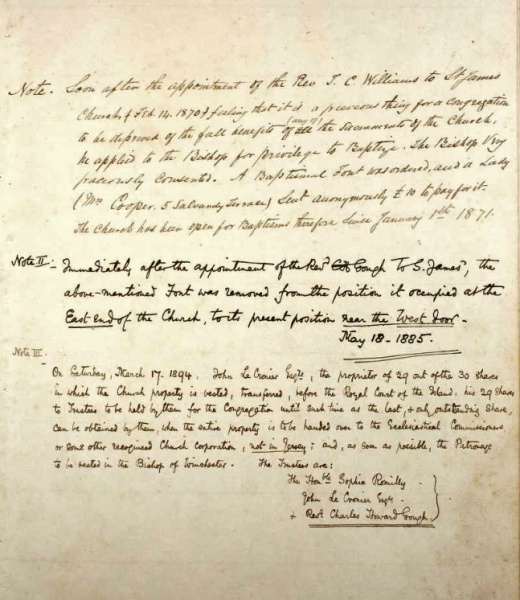 Note. Soon after the appointment of the Rev T. C. Williams to St James
Church, (Feb. 14. 1870) feeling that it is a grievous thing for a congregation
to be deprived of the full benefits of (any of) the Sacraments of the Church,
he applied to the Bishop for privilege to Baptize. The Bishop very
graciously consented. A Baptismal Font was ordered, and a Lady
(Mrs Cooper. 5 Salvandy Terrace) sent anonymously £10 to pay for it.
The Church has been open for Baptisms therefore since January 1st 1871.
Note II:- Immediately after the appointment of the Revd C H Gough to S. James', the
above-mentioned Font was removed from the position it occupied at the
East end of the Church, to its present position near the West door.
May 18 - 1885.
Note III:-
On Saturday, March 17. 1894. John Le Cronier Esqre, the proprietor of 29 out of the 30 shares
in which the Church property is vested, transferred, before the Royal Court of the Island, his 29 shares
to Trustees to be held by them for the Congregation until such time as the last, & only outstanding share,
can be obtained by them, when the entire property is to be handed over to the Ecclesiastical Commissioners
or some other recognised Church corporation, not in Jersey; and, as soon as possible, the Patronage
to be vested in the Bishop of Winchester. The Trustees are:
The Honble Sophia Romilly.
John Le Cronier Esqre.
& Revd Charles Howard Gough.